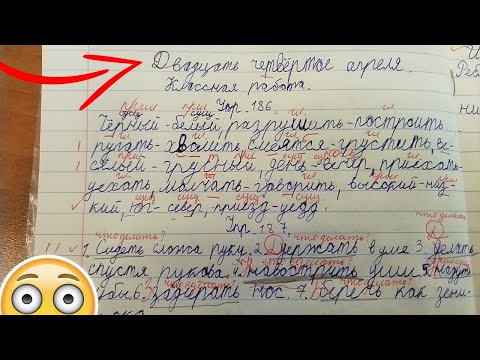 Двадцать четвёртое апреля.
Классная работа.
Упр. 186
Чёрный-белый, разрушить-построить,
ругать-хвалить, смеятся-грустить, ве-
сёлый-грусный, день-вечер, приехать-
уехать, молчать-говорить, высокий-низ-
кий, юг-север, приезд-уезд.
Упр. 187.
что делать?
что делать? что делать?
1. Сидеть сложа руки. 2. Держать в уме 3. Делать
спустя рукова. 4. навострить уши. 5.
губы. 6. задирать нос. 7. беречь как зени-